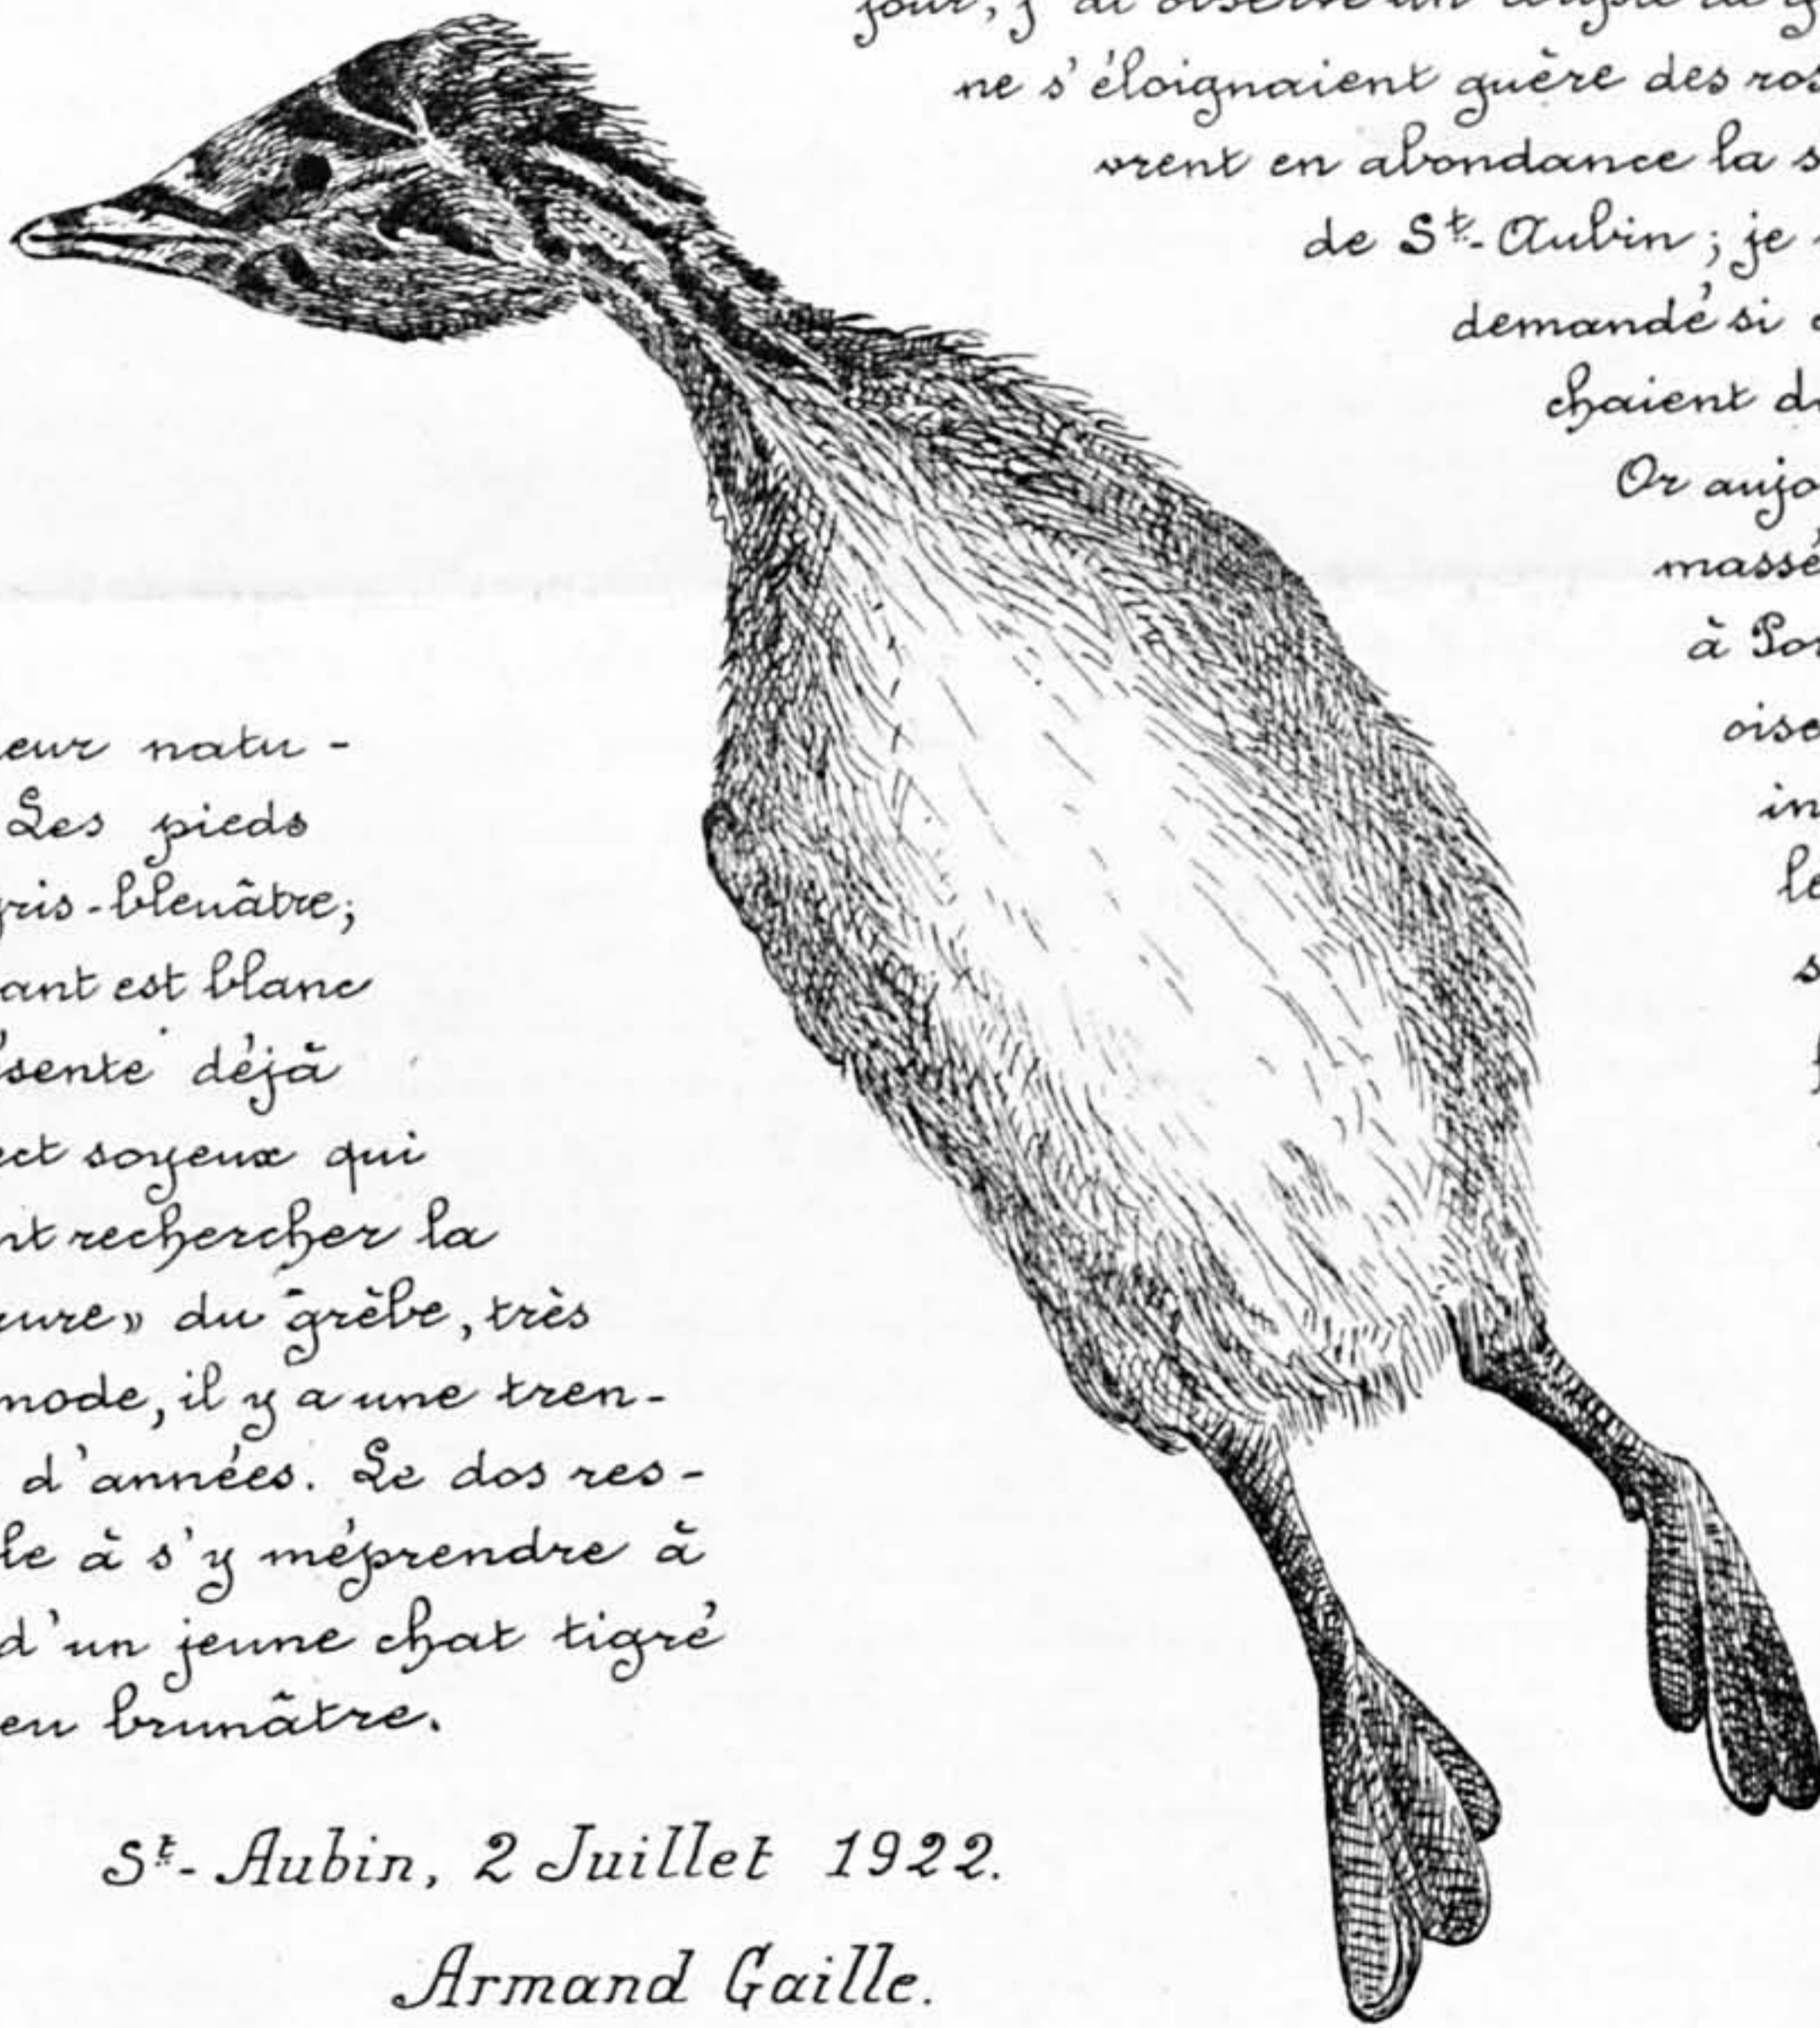 jour, j'ai observé un couple de
ne s'éloignaient guère des
vrent en abondance la
de St-Aubin ; je
demandé si
chaient
Or
massé
à
in
le
eur natu-
Les pieds
ris-bleuâtre;
ant est blanc
sente déjà
ect soyeux qui
nt rechercher la
ure» du grèbe, très
mode, il y a une tren-
d'années. Le dos res-
le à s'y méprendre à
d'un jeune chat tigré
eu brunâtre.
St-Aubin, 2 Juillet 1922.
Armand Gaille.